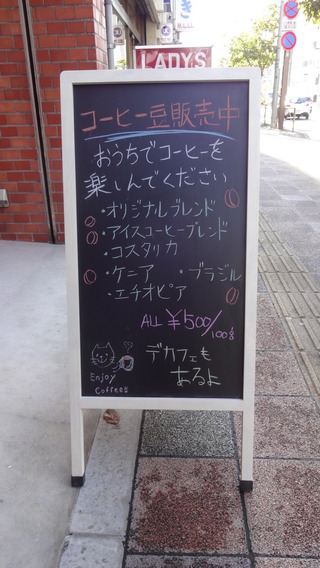 LADYS
コーヒー豆販売中
おうちでコーヒーを
楽しんでください
・オリジナルブレンド
・アイスコーヒーブレンド
・コスタリカ
・ケニア ・ブラジル
・エチオピア
ALL ¥500/100g
デカフェも
あるよ
Enjoy
Coffee